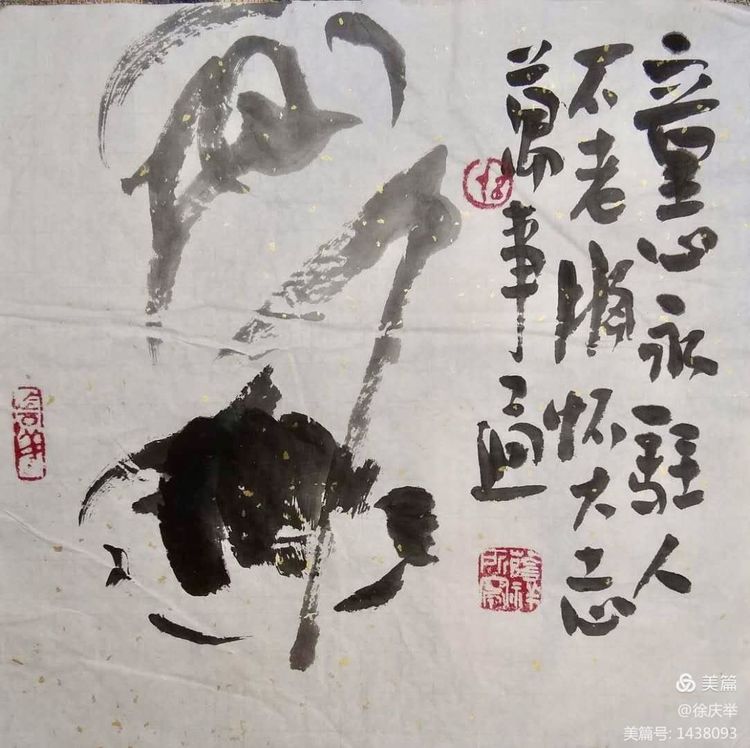 童心永駐人
不老怀大志
萬事通
美篇
@徐庆举
美篇号: 1438093